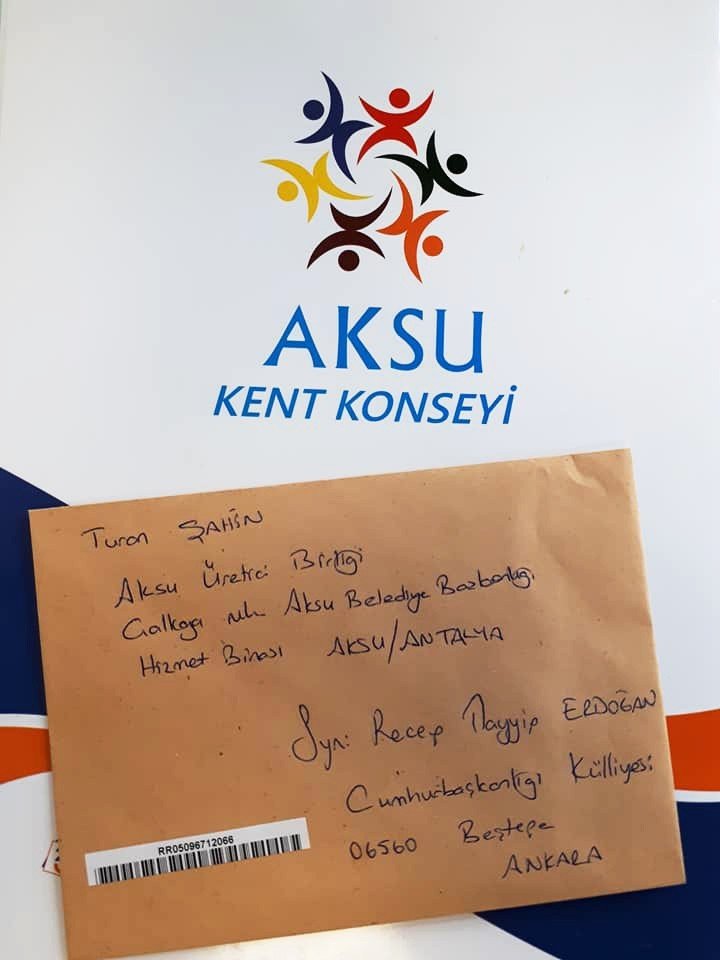 AKSU
KENT KONSEYİ
Turan ŞAHİN
Aksu Üretici Birliği
Çalkaya mh Aksu Belediye Başkanlığı
Hizmet Binası AKSU/ANTALYA
Syn: Recep Tayyip ERDOĞAN
Cumhurbaşkanlığı Külliyesi
06560 Beştepe
ANKARA
RR05096712066